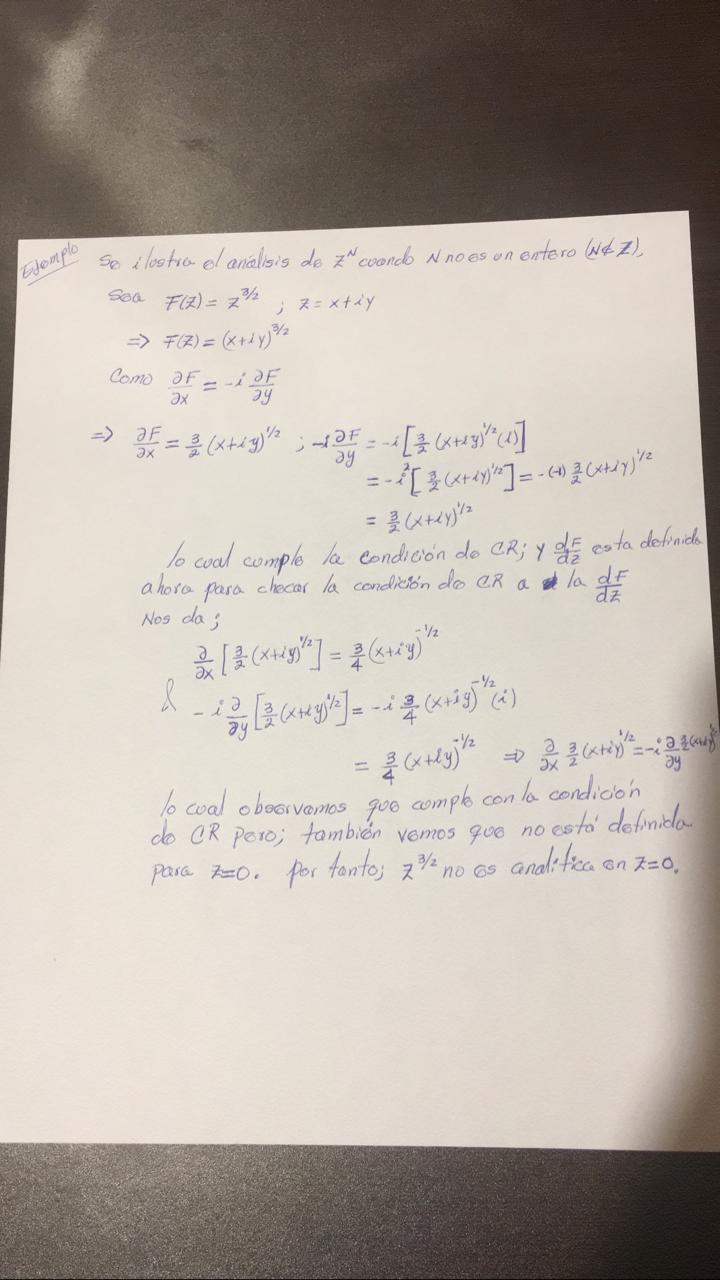 Ejemplo Se ilustra el análisis de z^N cuando N no es un entero (N∉Z),
Sea F(z) = z^{3/2} ; z = x+iy
=> F(z) = (x+iy)^{3/2}
Como ∂F/∂x = -i ∂F/∂y
=> ∂F/∂x = 3/2 (x+iy)^{1/2} ; -i ∂F/∂y = -i[3/2 (x+iy)^{1/2} (i)]
= -i^2 [3/2 (x+iy)^{1/2}] = -(-1) 3/2 (x+iy)^{1/2}
= 3/2 (x+iy)^{1/2}
lo cual cumple la condición de CR; y dF/dz esta definida
ahora para checar la condición de CR a la dF/dz
Nos da;
∂/∂x [3/2 (x+iy)^{1/2}] = 3/4 (x+iy)^{-1/2}
&
-i ∂/∂y [3/2 (x+iy)^{1/2}] = -i 3/4 (x+iy)^{-1/2} (i)
= 3/4 (x+iy)^{-1/2} => ∂/∂x 3/2 (x+iy)^{1/2} = -i ∂/∂y 3/2 (x+iy)^{1/2}
lo cual observamos que cumple con la condición
de CR pero; también vemos que no está definida
para z=0. Por tanto; z^{3/2} no es analítica en z=0.